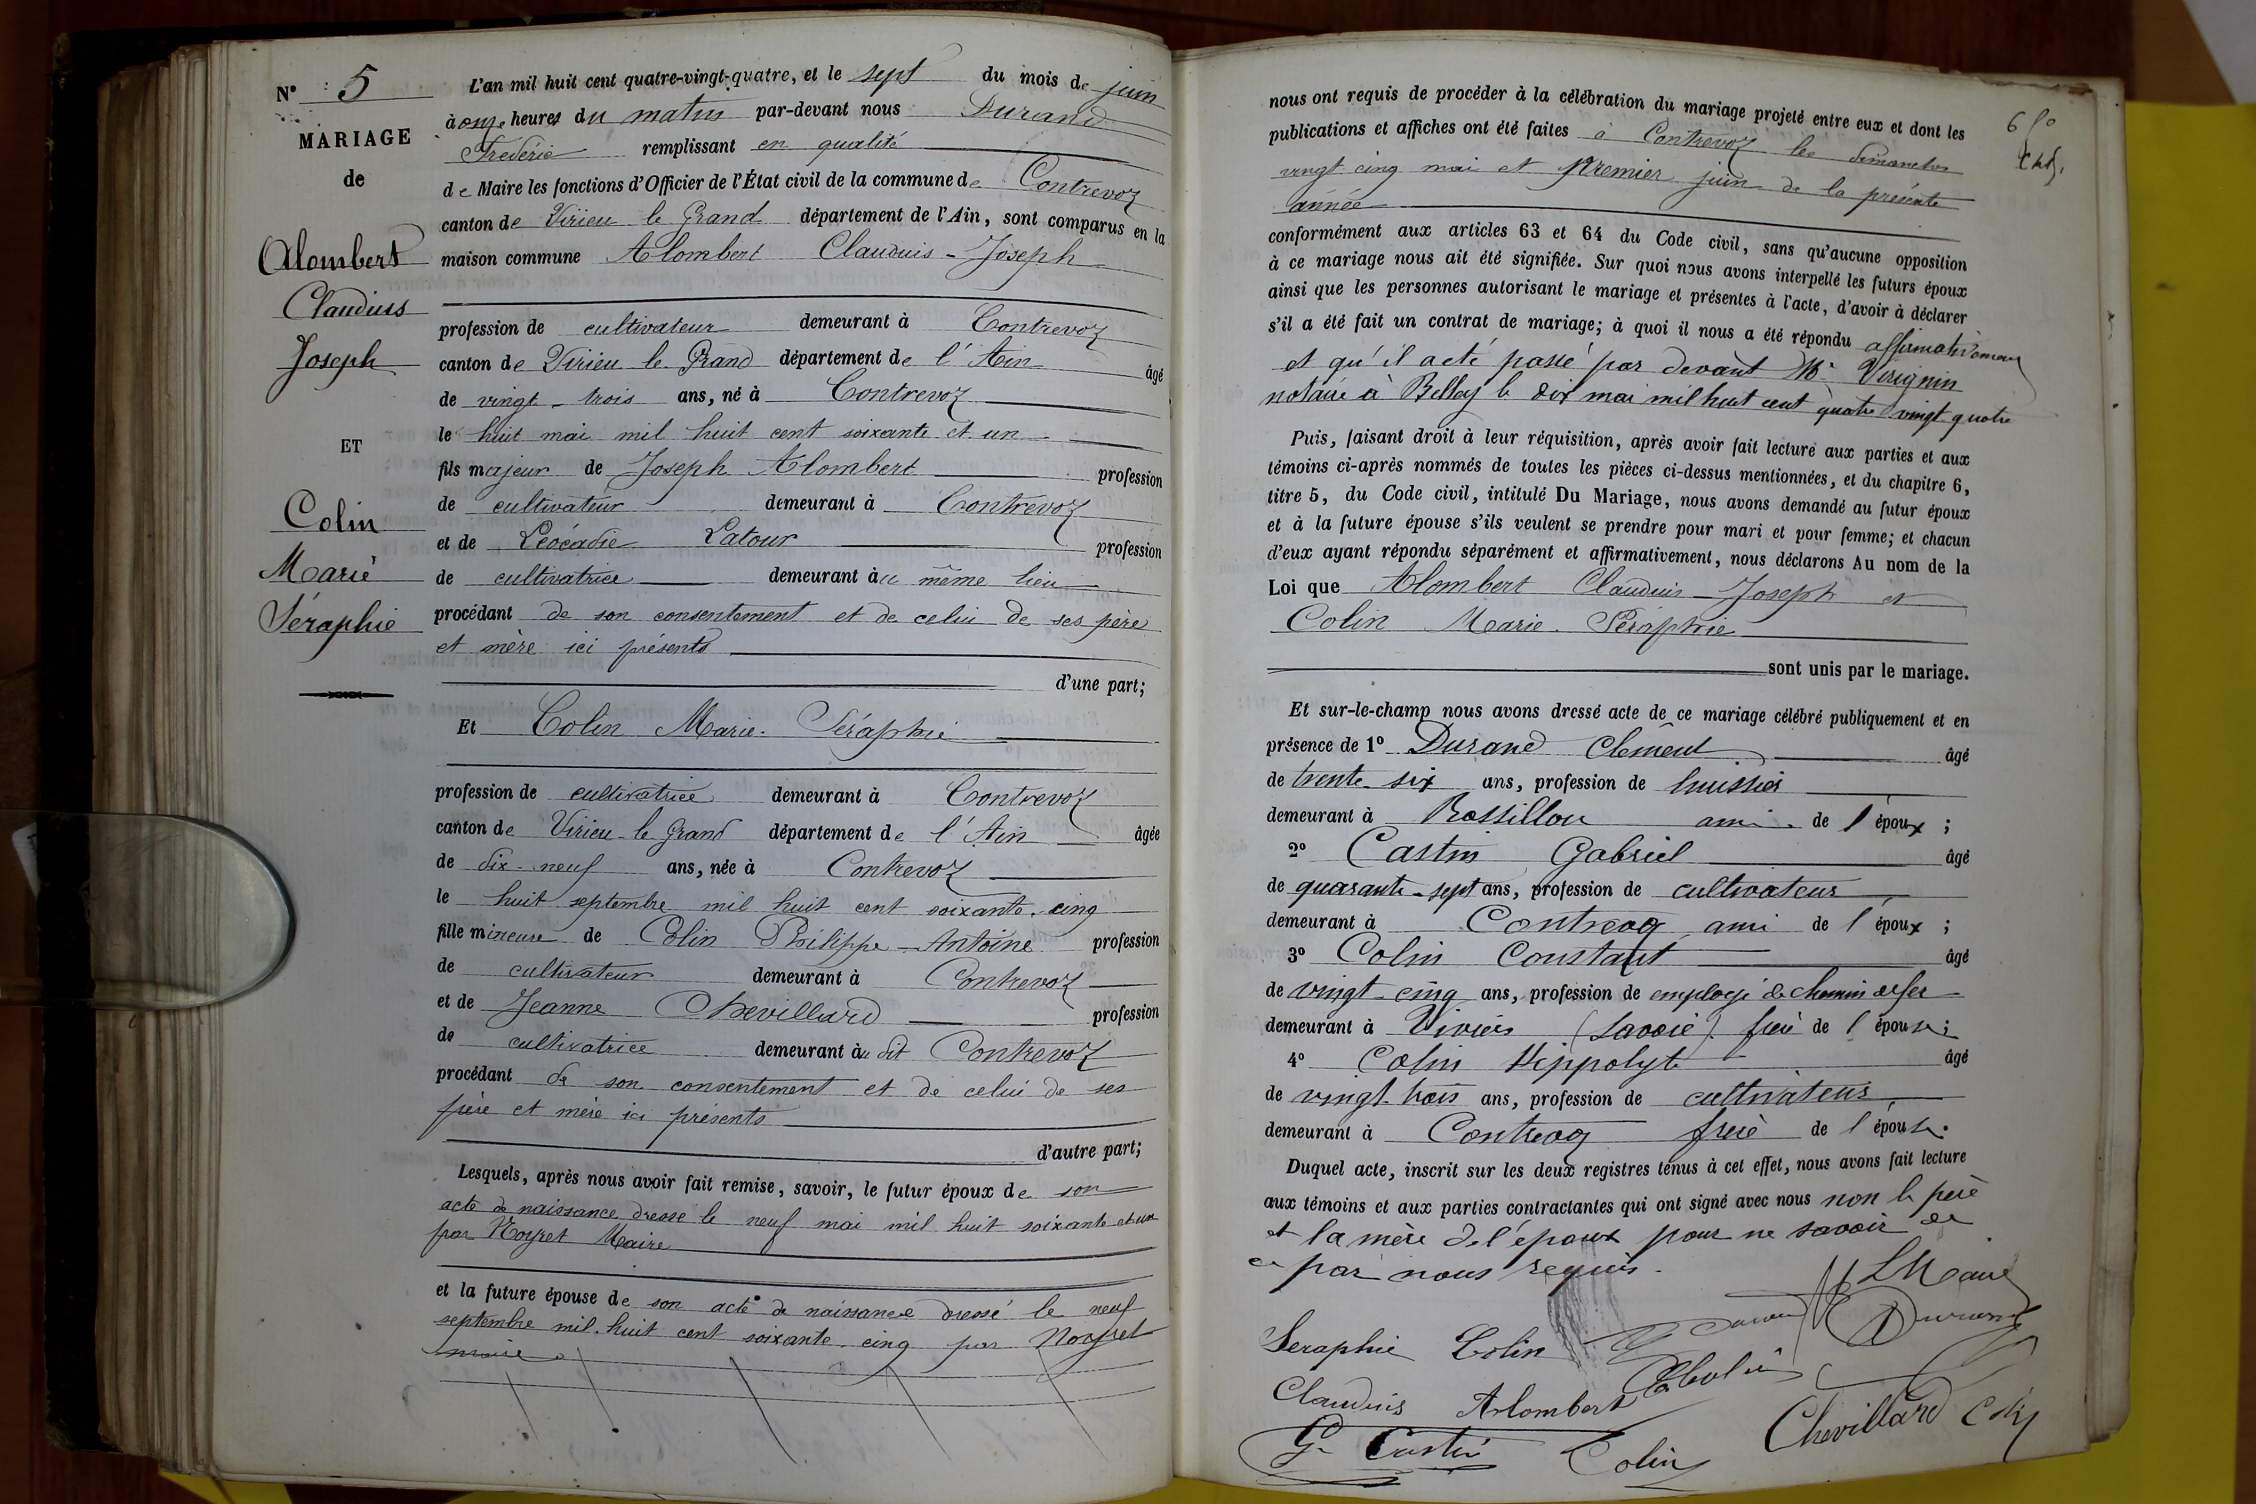 N° 5
MARIAGE
de
Alombert
Claudius
Joseph
ET
Colin
Marie
Séraphie
L'an mil huit cent quatre-vingt-quatre, et le sept du mois de juin
à onze heures du matin par-devant nous Durand
Frédéric remplissant en qualité
de Maire les fonctions d'Officier de l'État civil de la commune de Contrevoz
canton de Virieu le Grand département de l'Ain, sont comparus en la
maison commune Alombert Claudius-Joseph
profession de cultivateur demeurant à Contrevoz
canton de Virieu le Grand département de l'Ain âgé
de vingt-trois ans, né à Contrevoz
le huit mai mil huit cent soixante et un
fils majeur de Joseph Alombert profession
de cultivateur demeurant à Contrevoz
et de Léocadie Latour profession
de cultivatrice demeurant au même lieu
procédant de son consentement et de celui de ses père
et mère ici présents
d'une part;
Et Colin Marie-Séraphie
profession de cultivatrice demeurant à Contrevoz
canton de Virieu-le Grand département de l'Ain âgée
de dix-neuf ans, née à Contrevoz
le huit septembre mil huit cent soixante-cinq
fille mineure de Colin Philippe-Antoine profession
de cultivateur demeurant à Contrevoz
et de Jeanne Chevillard profession
de cultivatrice demeurant au dit Contrevoz
procédant de son consentement et de celui de ses
père et mère ici présents
d'autre part;
Lesquels, après nous avoir fait remise, savoir, le futur époux de son
acte de naissance dressé le neuf mai mil huit soixante et un
par Noyret Maire
et la future épouse de son acte de naissance dressé le neuf
septembre mil-huit cent soixante-cinq par Noyret
maire
nous ont requis de procéder à la célébration du mariage projeté entre eux et dont les
publications et affiches ont été faites à Contrevoz les dimanches
vingt cinq mai et premier juin de la présente
année
conformément aux articles 63 et 64 du Code civil, sans qu'aucune opposition
à ce mariage nous ait été signifiée. Sur quoi nous avons interpellé les futurs époux
ainsi que les personnes autorisant le mariage et présentes à l'acte, d'avoir à déclarer
s'il a été fait un contrat de mariage; à quoi il nous a été répondu affirmativement
et qu'il a été passé par devant Me
notaire à Belley le dix mai mil huit cent quatre vingt quatre
Puis, faisant droit à leur réquisition, après avoir fait lecture aux parties et aux
témoins ci-après nommés de toutes les pièces ci-dessus mentionnées, et du chapitre 6,
titre 5, du Code civil, intitulé Du Mariage, nous avons demandé au futur époux
et à la future épouse s'ils veulent se prendre pour mari et pour femme; et chacun
d'eux ayant répondu séparément et affirmativement, nous déclarons Au nom de la
Loi que Alombert Claudius-Joseph et
Colin Marie-Séraphie
sont unis par le mariage.
Et sur-le-champ nous avons dressé acte de ce mariage célébré publiquement et en
présence de 1° Durand Clément âgé
de trente-six ans, profession de huissier
demeurant à Rossillon ami de l'époux;
2° Castin Gabriel âgé
de quarante-sept ans, profession de cultivateur
demeurant à Contrevoz ami de l'époux;
3° Colin Constant âgé
de vingt-cinq ans, profession de employé de chemin de fer
demeurant à Viviers (Savoie) frère de l'épouse;
4° Colin Hippolyte âgé
de vingt-trois ans, profession de cultivateur
demeurant à Contrevoz frère de l'épouse.
Duquel acte, inscrit sur les deux registres tenus à cet effet, nous avons fait lecture
aux témoins et aux parties contractantes qui ont signé avec nous non le père
et la mère de l'époux pour ne savoir de
ce par nous requis.
Le Maire
Durand
Seraphie Colin
Claudius Alombert
Chevillard
G. Castin Colin